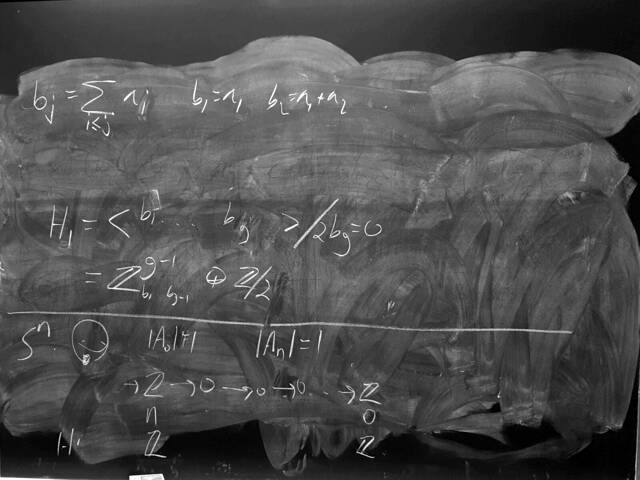 b_j = ∑_{i≤j} a_j b_1 = a_1 b_2 = a_1 + a_2
H_1 = < b_1 .... b_g > / 2b_g = 0
= ℤ^{g-1}_{b_1 b_{g-1}} ⊕ ℤ/2
S^n. |A_0|=1 |A_n|=1
→ ℤ → 0 → 0 → 0 .. → ℤ
n 0
H. ℤ ℤ